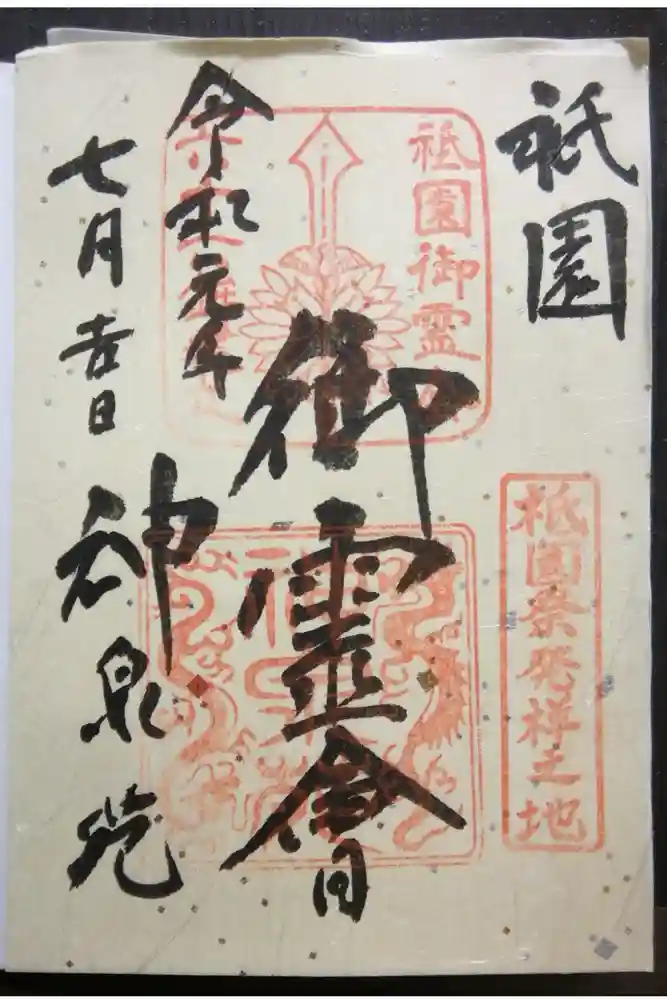 祇園
御靈會
令和元年
七月吉日
神泉苑
祇園御霊会
祇園祭発祥之地